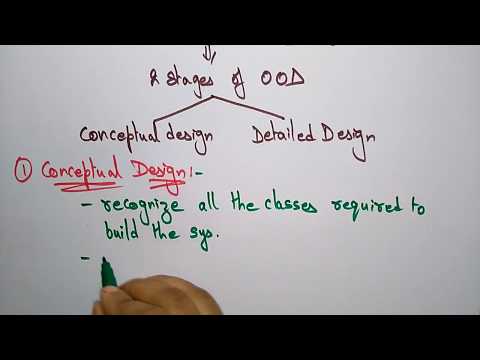 2 stages of OOD
Conceptual design Detailed Design
① Conceptual Design:-
- recognize all the classes required to
build the sys.
-